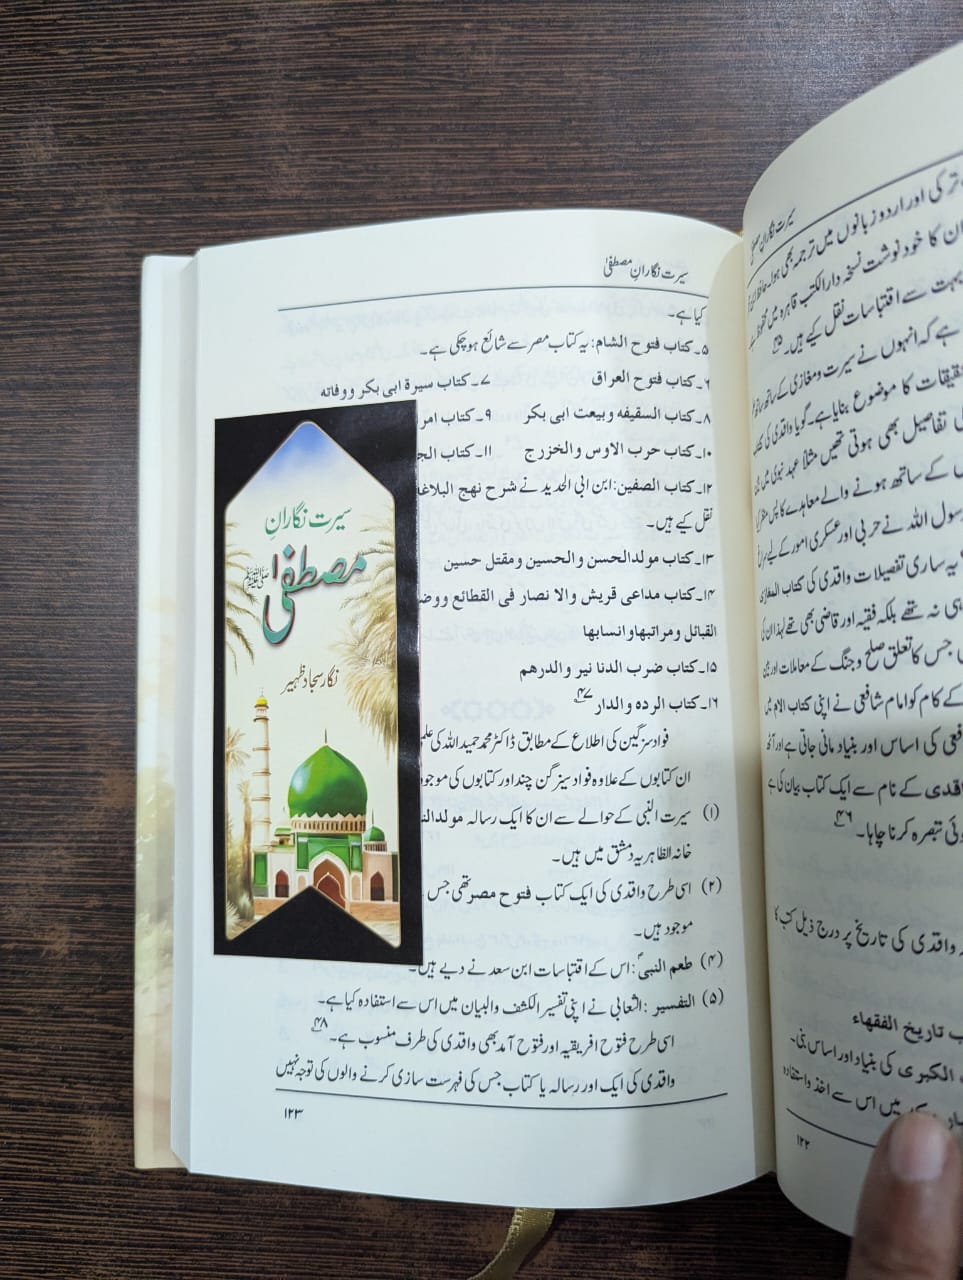 سیرت نگارانِ مصطفیٰ
کیا ہے۔
۵۔ کتاب فتوح الشام: یہ کتاب مصر سے شائع ہو چکی ہے۔
۶۔ کتاب فتوح العراق ۷۔ کتاب سیرۃ ابی بکر ووفاتہ
۸۔ کتاب السقیفہ وبیعت ابی بکر ۹۔ کتاب
۱۰۔ کتاب حرب الاوس والخزرج ۱۱۔ کتاب
۱۲۔ کتاب الصفین: ابن ابی الحدید نے شرح نہج البلاغہ
نقل کیے ہیں۔
۱۳۔ کتاب مولدالحسن والحسین ومقتل حسین
۱۴۔ کتاب مداعی قریش والا نصار فی القطائع ووضـ
القبائل ومراتبھاوانسابھا
۱۵۔ کتاب ضرب الدنا نیر والدرھم
۱۶۔ کتاب الردہ والدار ۴۷
فوادسزگین کی اطلاع کے مطابق ڈاکٹر محمد حمید اللہ کی
ان کتابوں کے علاوہ فواد سیزگن چند اور کتابوں کی
(۱) سیرت النبی کے حوالے سے ان کا ایک رسالہ
خانہ الظاہریہ دمشق میں ہیں۔
(۲) اسی طرح واقدی کی ایک کتاب فتوح مصر تھی جس
موجود ہیں۔
(۴) طعم النبیؐ: اس کے اقتباسات ابن سعد نے دیے ہیں۔
(۵) التفسیر: الثعابی نے اپنی تفسیر الکشف والبیان میں اس سے استفادہ کیا ہے۔
اسی طرح فتوح افریقیہ اور فتوح آمد بھی واقدی کی طرف منسوب ہے۔ ۴۸
واقدی کی ایک اور رسالہ یا کتاب جس کی فہرست سازی کرنے والوں کی توجہ نہیں
۱۲۳
سیرت نگارانِ
مصطفیٰ ﷺ
نگار سجاد ظہیر
سیرت نگارانِ مصطفیٰ
ترکی اور اردو زبانوں میں ترجمہ بھی ہوا۔
ان کا خود نوشت نسخہ دار الکتب قاہرہ میں
بہت سے اقتباسات نقل کیے ہیں۔ ۴۵
ہے کہ انہوں نے سیرت و مغازی کے ساتھ
تحقیقات کا موضوع بنایا ہے۔ گویا واقدی کی
تفاصیل بھی ہوتی تھیں مثلاً عہد نبوی میں
کے ساتھ ہونے والے معاہدے کا پس منظر
رسول اللہ نے حربی اور عسکری امور کے لیے
یہ ساری تفصیلات واقدی کی کتاب المغازی
ہی نہ تھے بلکہ فقیہ اور قاضی بھی تھے لہذا ان کی
جس کا تعلق صلح و جنگ کے معاملات اور
کے کام کو امام شافعی نے اپنی کتاب الام میں
کی اساس اور بنیاد مانی جاتی ہے اور
واقدی کے نام سے ایک کتاب بیان کی ہے
کوئی تبصرہ کرنا چاہا۔ ۴۶
واقدی کی تاریخ پر درج ذیل کتب کا
تاریخ الفقھاء
الکبری کی بنیاد اور اساس بنی۔
میں اس سے اخذ واستفادہ
۱۲۲